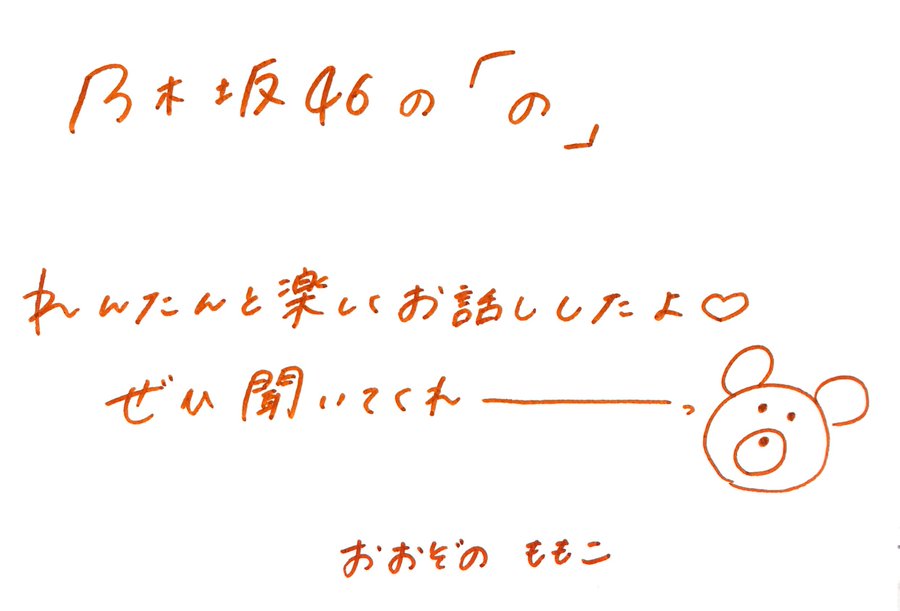 乃木坂46の「の」
れんたんと楽しくお話ししたよ♡
ぜひ聞いてくれーっ
おおぞの ももこ